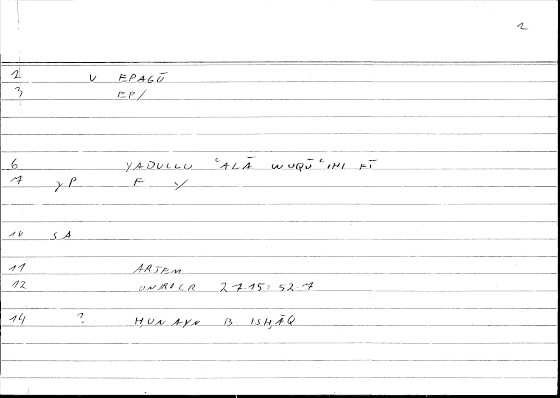 2
2 V EPAGŪ
3 EP/
6 YADULLU ʿALĀ WUQŪʿIHI FĪ
7 γP F γ
10 SA
11 ARTEM
12 27.15; 52.7
14 ? ḤUNAYN B. ISḤĀQ